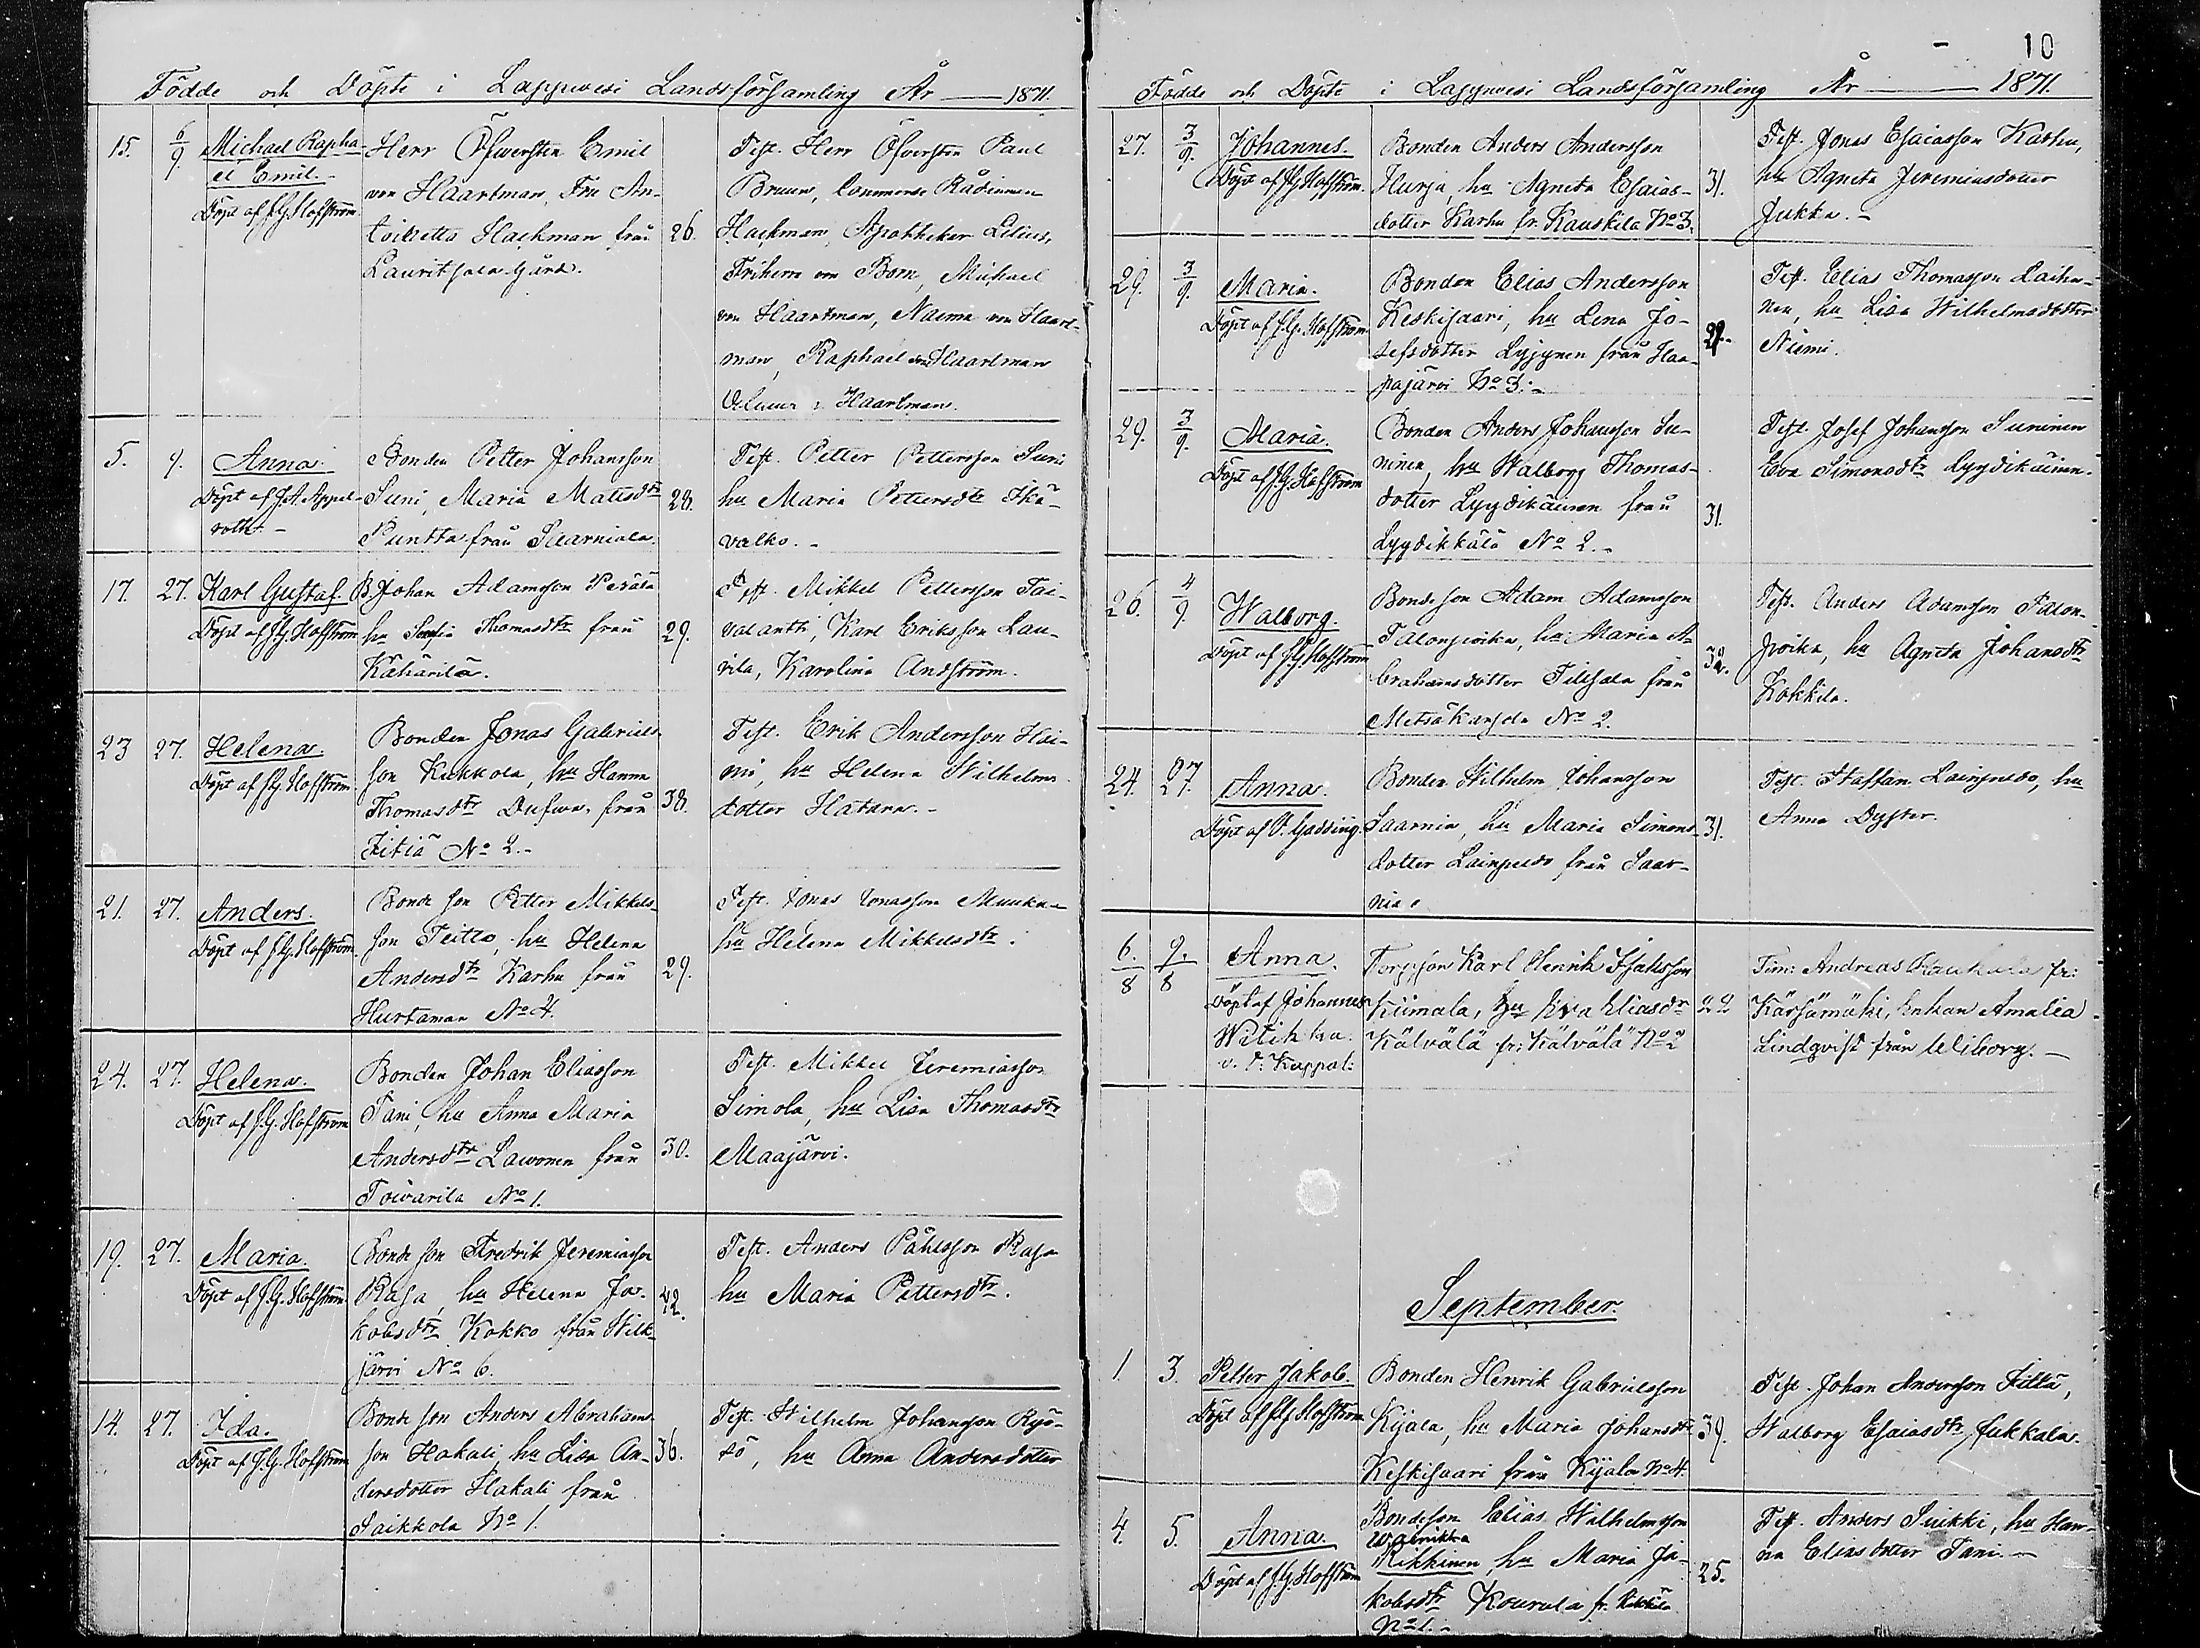 Födde och Döpte i Lappwesi Landsförsamling År — 1871.
15. 6/9 Michael Rapha-
el Emil.
Döpt af J.G. Hofström
Herr Öfwersten Emil
von Haartman, Fru An-
toinetta Hackman från
Lauritsala Gård.
26.
Test. Herr Öfversten Paul
Bruun, Commerse Rådinnan
Hackman, Apothekar Lilius,
Friherre von Born, Michael
von Haartman, Naema von Haart-
man, Raphael von Haartman
Haartman.
5. 9. Anna.
Döpt af J.A. Appel-
roth. -
Bonden Petter Johansson
Suni, Maria Matsdtr
Puntta från Saarniala.
28.
Test. Petter Pettersson Suni
hu Maria Pettersdtr Ikä-
valko. -
17. 27. Karl Gustaf.
Döpt af J.G. Hofström
B. Johan Adamsson Perälä
hu Sofia Thomasdtr från
Kähärilä.
29.
Test. Mikkel Pettersson Tai-
valantti, Karl Eriksson Lau-
rila, Karolina Andström.
23 27. Helena.
Döpt af J.G. Hofström
Bonden Jonas Gabriels-
son Kukkola, hu Hanna
Thomasdtr Dufwa, från
Iitiä No 2. -
38.
Test. Erik Andersson Hei-
ni, hu Helena Wilhelms
dotter Hatara. -
21. 27. Anders.
Döpt af J.G. Hofström
Bonde son Petter Mikkels-
son Teitto, hu Helena
Andersdtr Karhu från
Hurtaman No 4.
29.
Test. Jonas Jonasson Muukka
hu Helena Mikkelsdtr.
24. 27. Helena.
Döpt af J.G. Hofström
Bonden Johan Eliasson
Tani, hu Anna Maria
Andersdtr Lawonen från
Toivarila No 1.
30.
Test. Mikkel Jeremiasson
Simola, hu Lisa Thomasdtr
Maajärvi.
19. 27. Maria.
Döpt af J.G. Hofström
Bonde son Fredrik Jeremiasson
Rasa, hu Helena Ja-
kobsdtr Kokko från Wilk-
järvi No 6.
42.
Test. Anders Påhlsson Rasa
hu Maria Pettersdtr.
14. 27. Ida.
Döpt af J.G. Hofström
Bonde son Anders Abrahams
son Hakali, hu Lisa An-
dersdotter Hakali från
Saikkola No 1.
36.
Test. Wilhelm Johansson Ryö-
tö, hu Anna Andersdotter
10
Födde och Döpte i Lappwesi Landsförsamling År — 1871.
27. 3/9. Johannes.
Döpt af J.G. Hofström.
Bonden Anders Andersson
Hurja, hu Agneta Esaias-
dotter Karhu fr. Kauskila No 3.
31.
Test. Jonas Esaiasson Karhu,
hu Agneta Jeremiasdotter
Jukka. -
29. 3/9. Maria.
Döpt af J.G. Hofström
Bonden Elias Andersson
Keskisaari, hu Lena Jo-
sefsdotter Lyijynen från Haa-
pajärvi No 3. -
Test. Elias Thomasson Laiha-
nen, hu Lisa Wilhelmsdotter
Niemi.
29. 3/9. Maria.
Döpt af J.G. Hofström
Bonden Anders Johansson Su-
ninen, hu Walborg Thomas-
dotter Lyydikäinen från
Lyydikkälä No 2. -
31.
Test. Josef Johansson Suninen
Eva Simonsdtr Lyydikäinen.
26. 4/9. Walborg.
Döpt af J.G. Hofström
Bonde son Adam Adamsson
Talonpoika, hu Maria A-
brahamsdotter Tillsala från
Metsäkansola No 2.
32.
Test. Anders Adamsson Talon-
poika, hu Agneta Johansdtr
Kokkila.
24. 27. Anna.
Döpt af P. Gadding.
Bonden Wilhelm Johansson
Saarnia, hu Maria Simons-
dotter Lainpelto från Saar-
nia.
31.
Test. Staffan Lainpelto, hu
Anna Dyster.
6./8 9./8 Anna.
Döpt af Johannes
Witikka.
v. P. Kappal:
Torpson Karl Henrik Isaksson
Kiimala, hu Eva Eliasdr
Kälvälä fr: Kälvälä No 2
22
Tim: Andreas Haukala fr:
Kärsämäki, Enkan Amalia
Lindqvist från Wiborg. —
September.
1. 3. Petter Jakob.
Döpt af J.G. Hofström
Bonden Henrik Gabrielsson
Kijala, hu Maria Johansdtr
Keskisaari från Kijala No 4.
39.
Test. Johan Andersson Tiltu,
Walborg Esaiasdtr Jukkala.
4. 5. Anna.
Döpt af J.G. Hofström
Bondeson Elias Wilhelmsson
Rikkinen, hu Maria Ja-
kobsdtr Kourula fr. Rikkilä
No 1. -
25.
Test. Anders Suikki, hu Han-
na Eliasdotter Tani. —